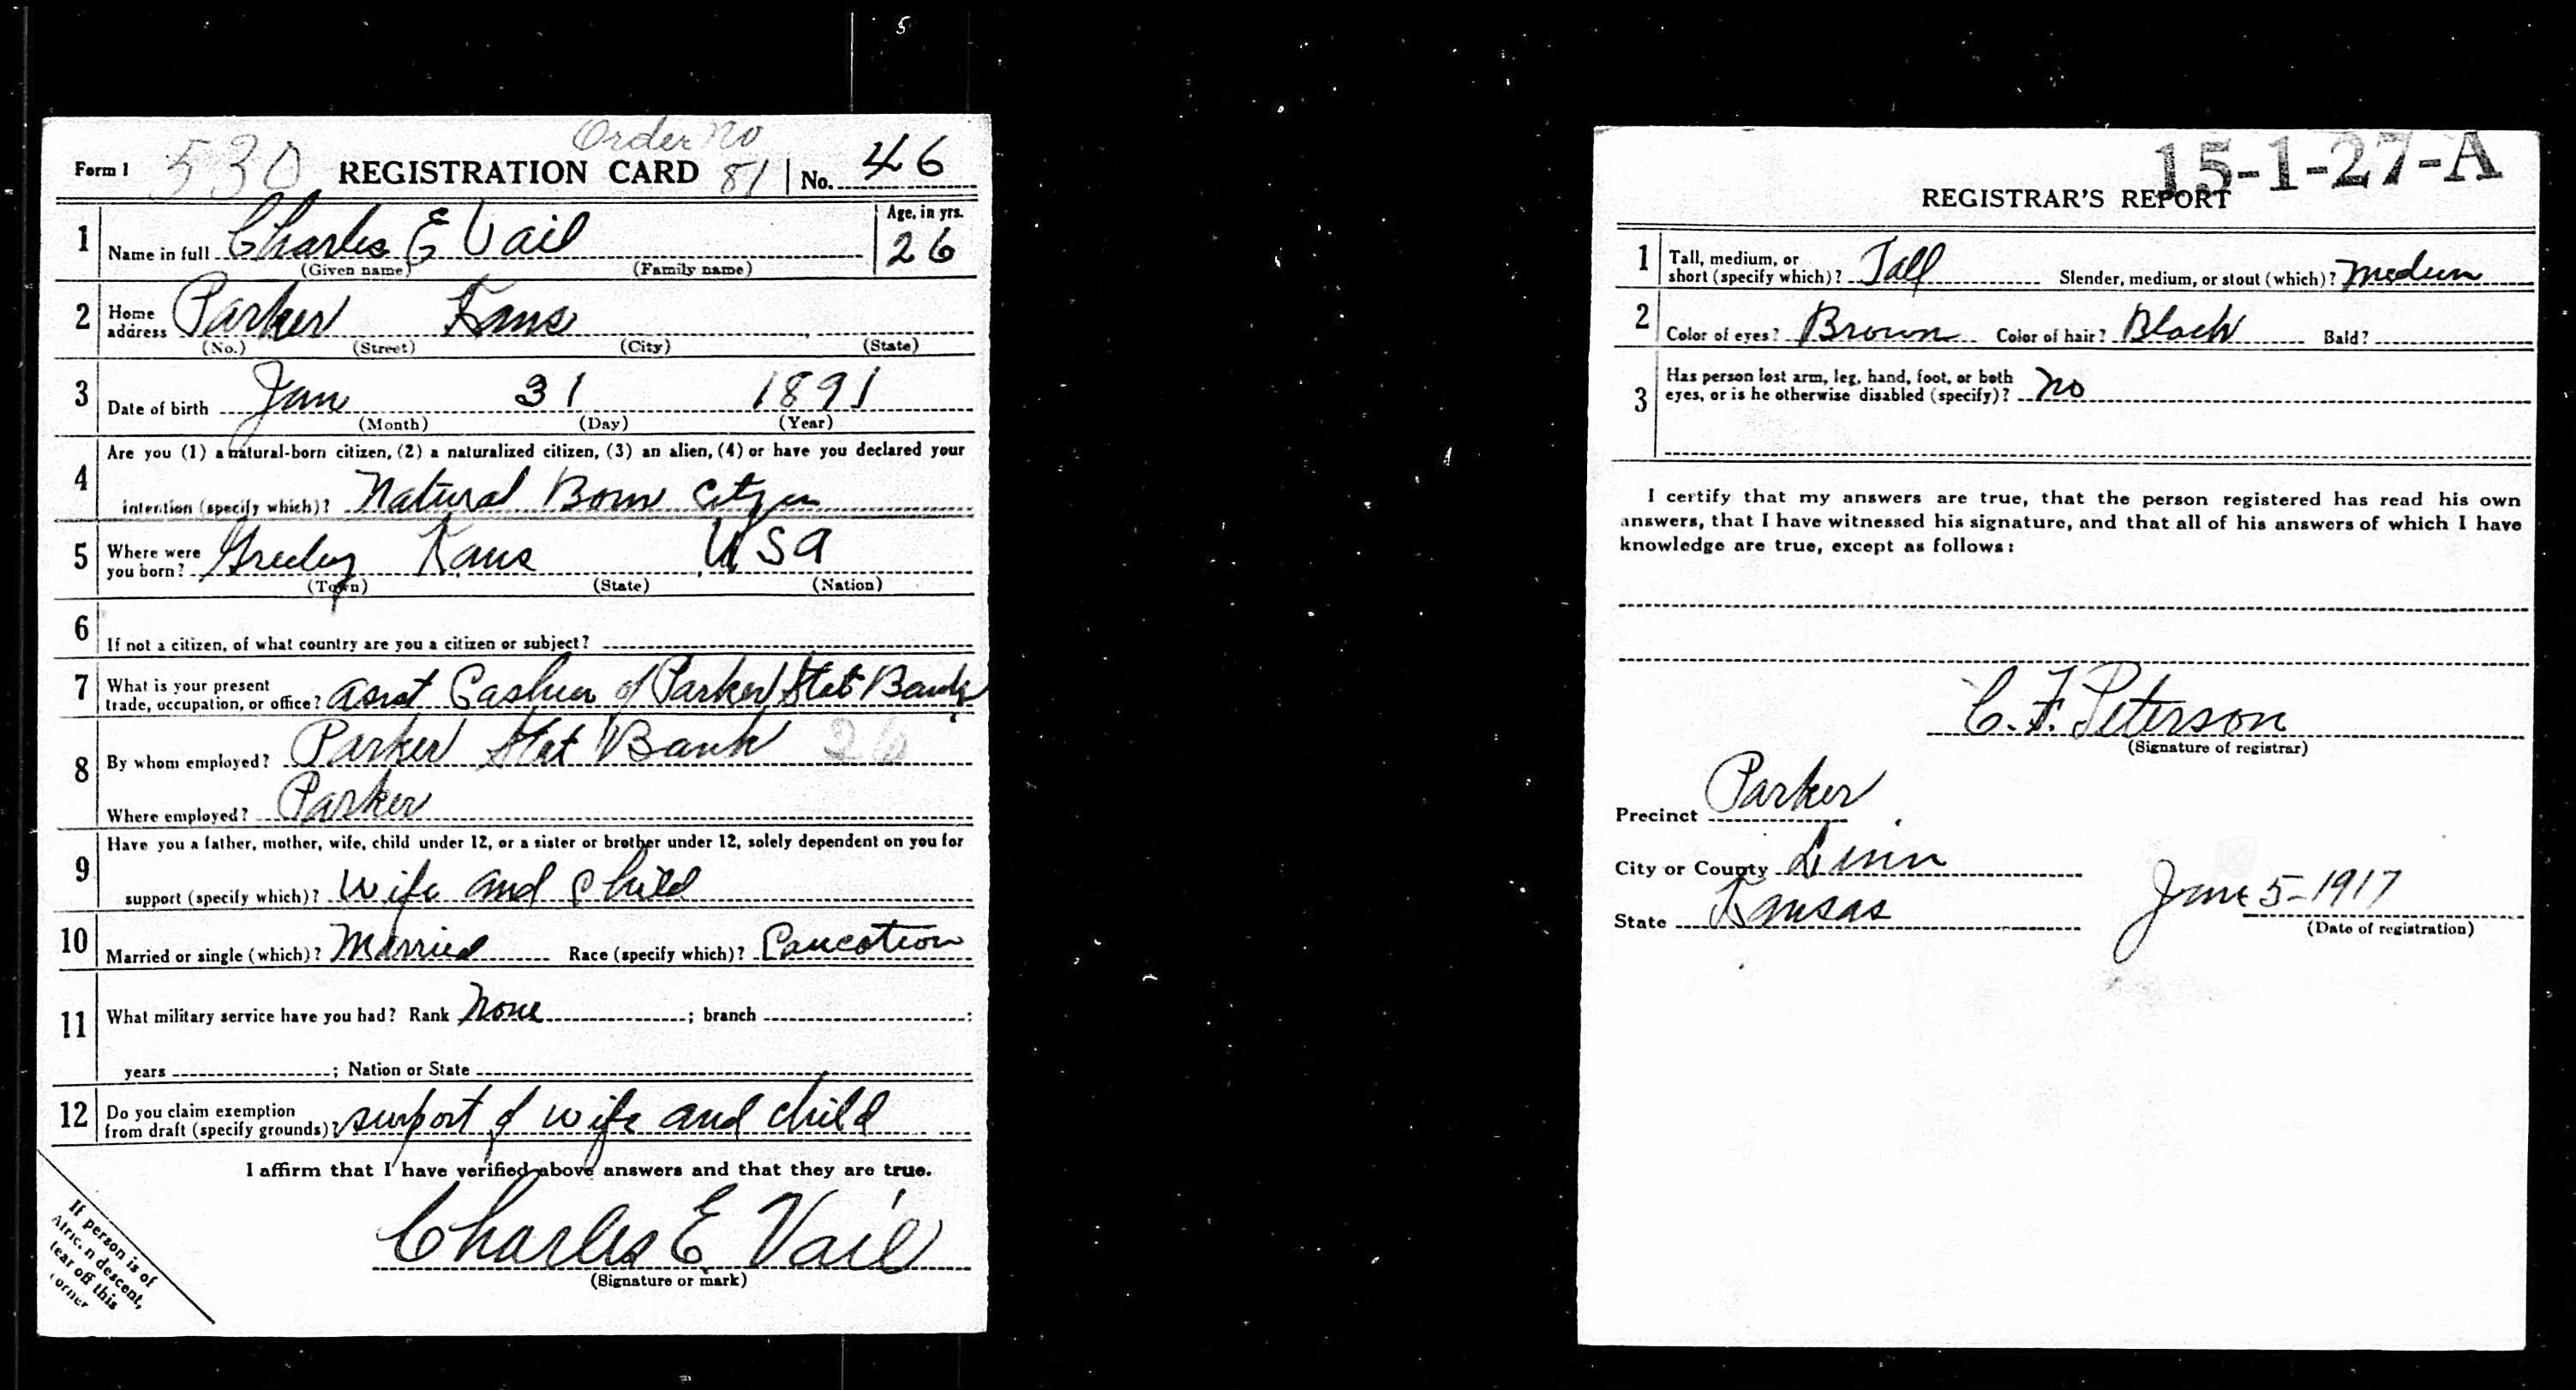 5
Order No
Form 1 530 REGISTRATION CARD 81 No. 46
1 Name in full Charles E Vail Age, in yrs. 26
(Given name) (Family name)
2 Home address Parker Kans
(No.) (Street) (City) (State)
3 Date of birth Jan 31 1891
(Month) (Day) (Year)
4 Are you (1) a natural-born citizen, (2) a naturalized citizen, (3) an alien, (4) or have you declared your
intention (specify which)? Natural Born Citzen
5 Where were you born? Greeley Kans USA
(Town) (State) (Nation)
6 If not a citizen, of what country are you a citizen or subject?
7 What is your present trade, occupation, or office? Asst Cashier of Parker Stat Bank
8 By whom employed? Parker Stat Bank 26
Where employed? Parker
9 Have you a father, mother, wife, child under 12, or a sister or brother under 12, solely dependent on you for
support (specify which)? Wife and Child
10 Married or single (which)? Married Race (specify which)? Caucation
11 What military service have you had? Rank None ; branch ;
years ; Nation or State
12 Do you claim exemption from draft (specify grounds)? support of wife and child
I affirm that I have verified above answers and that they are true.
Charles E Vail
(Signature or mark)
If person is of
African descent,
tear off this
corner
15-1-27-A
REGISTRAR'S REPORT
1 Tall, medium, or short (specify which)? Tall Slender, medium, or stout (which)? Medium
2 Color of eyes? Brown Color of hair? Black Bald?
3 Has person lost arm, leg, hand, foot, or both
eyes, or is he otherwise disabled (specify)? No
I certify that my answers are true, that the person registered has read his own
answers, that I have witnessed his signature, and that all of his answers of which I have
knowledge are true, except as follows:
C. F. Peterson
(Signature of registrar)
Precinct Parker
City or County Linn
State Kansas
June 5-1917
(Date of registration)